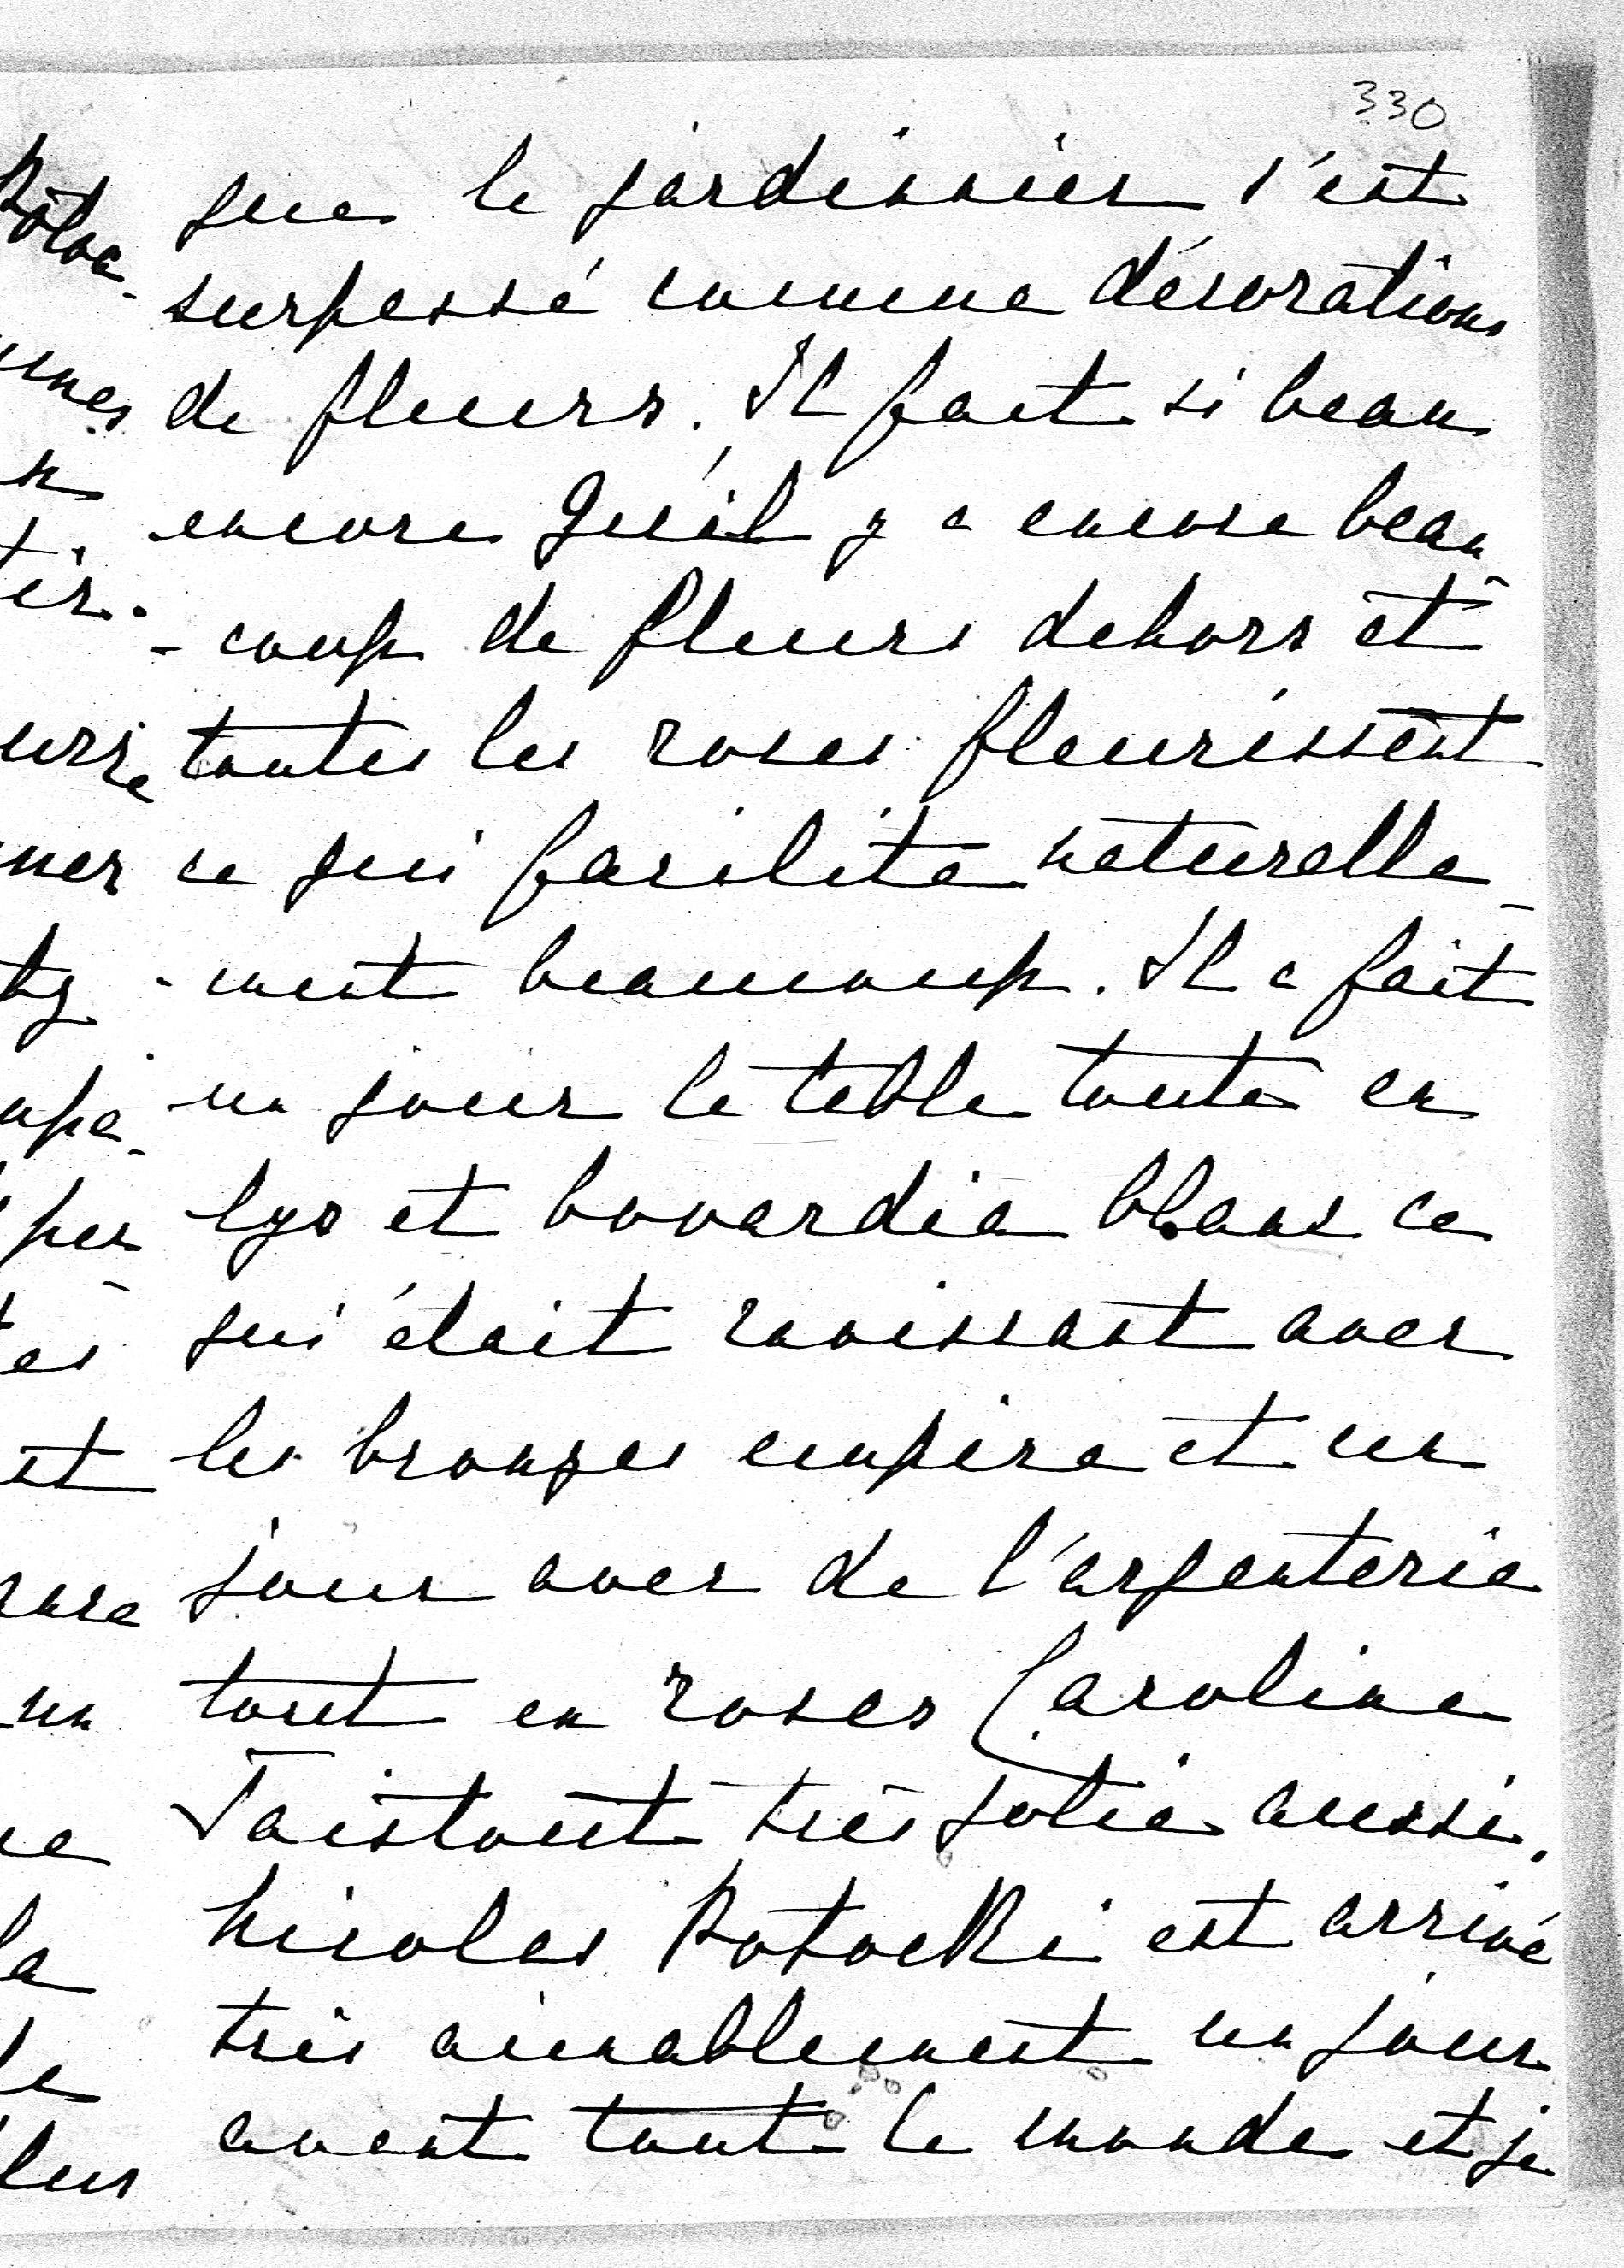 330
que le jardinnier s'est
surpassé comme décorations
de fleurs. Il fait si beau
encore qu'il y a encore beau-
- coup de fleurs dehors et
toutes les roses fleurissent
ce qui facilite naturelle-
- ment beaucoup. Il a fait
un jour la table toute en
lys et bouvardia blancs ce
qui était ravissant avec
les bronzes empire et un
jour avec de l'argenterie
tout en roses Caroline
Taistout très jolie aussi.
Nicolas Potocki est arrivé
très aimablement un jour
avant tout le monde et je